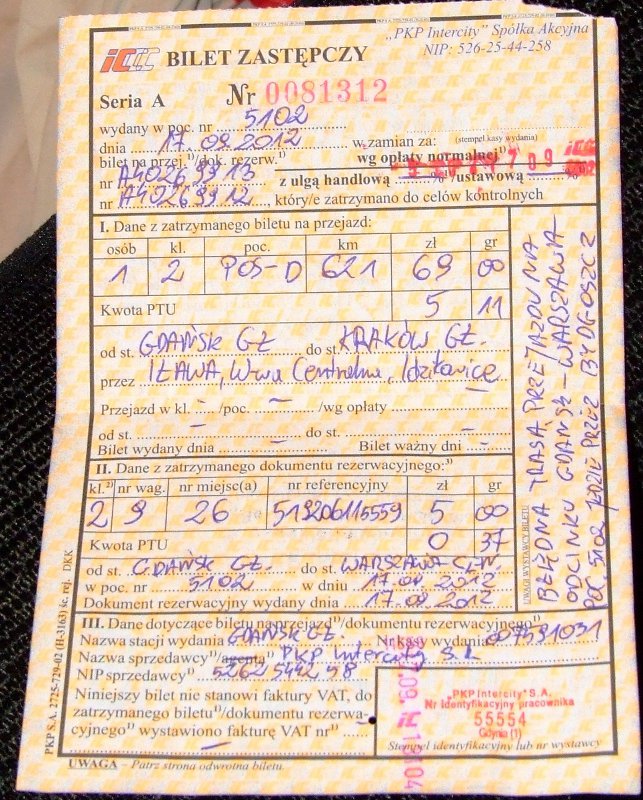 BILET ZASTĘPCZY
„PKP Intercity” Spółka Akcyjna
NIP: 526-25-44-258
Seria A Nr 0081312
wydany w poc. nr 5102
dnia 17.09.2012 w zamian za: (stempel kasy wydania)
bilet na przej.¹⁾/dok. rezerw.¹⁾ wg opłaty normalnej¹⁾
nr A40269913 z ulgą handlową % ¹⁾/ustawową %¹⁾
nr A40269912, który/e zatrzymano do celów kontrolnych
I. Dane z zatrzymanego biletu na przejazd:
osób kl. poc. km zł gr
1 2 POS-D 621 69 00
Kwota PTU 5 11
od st. GDAŃSK GŁ do st. KRAKÓW GŁ.
przez IŁAWA, W-wa Centralna, Idzikowice
Przejazd w kl. - /poc. - /wg opłaty
od st. - do st. -
Bilet wydany dnia - Bilet ważny dni -
II. Dane z zatrzymanego dokumentu rezerwacyjnego:³⁾
kl.²⁾ nr wag. nr miejsc(a) nr referencyjny zł gr
2 9 26 519206115559 5 00
Kwota PTU 0 37
od st. GDAŃSK GŁ. do st. WARSZAWA
w poc. nr 5102 w dniu 2012
Dokument rezerwacyjny wydany dnia 17.09.2012
III. Dane dotyczące biletu na przejazd¹⁾/dokumentu rezerwacyjnego¹⁾
Nazwa stacji wydania GDAŃSK GŁ. Nr kasy wydania 007591031
Nazwa sprzedawcy¹⁾/agenta¹⁾ PKP Intercity S.A.
NIP sprzedawcy¹⁾ 5262544258
Niniejszy bilet nie stanowi faktury VAT, do
zatrzymanego biletu¹⁾/dokumentu rezerwa-
cyjnego¹⁾ wystawiono fakturę VAT nr¹⁾ -
"PKP Intercity" S.A.
Nr identyfikacyjny pracownika
55554
Gdynia (1)
Stempel identyfikacyjny lub nr wystawcy
UWAGA – Patrz strona odwrotna biletu.
UWAGI WYSTAWCY BILETU
BŁĘDNA TRASA PRZEJAZDU NA
ODCINKU GDAŃSK-WARSZAWA
POC 5102 JEDZIE PRZEZ BYDGOSZCZ
PKP S.A. 2725-729-02 (H-3163) śc. rej. DKK